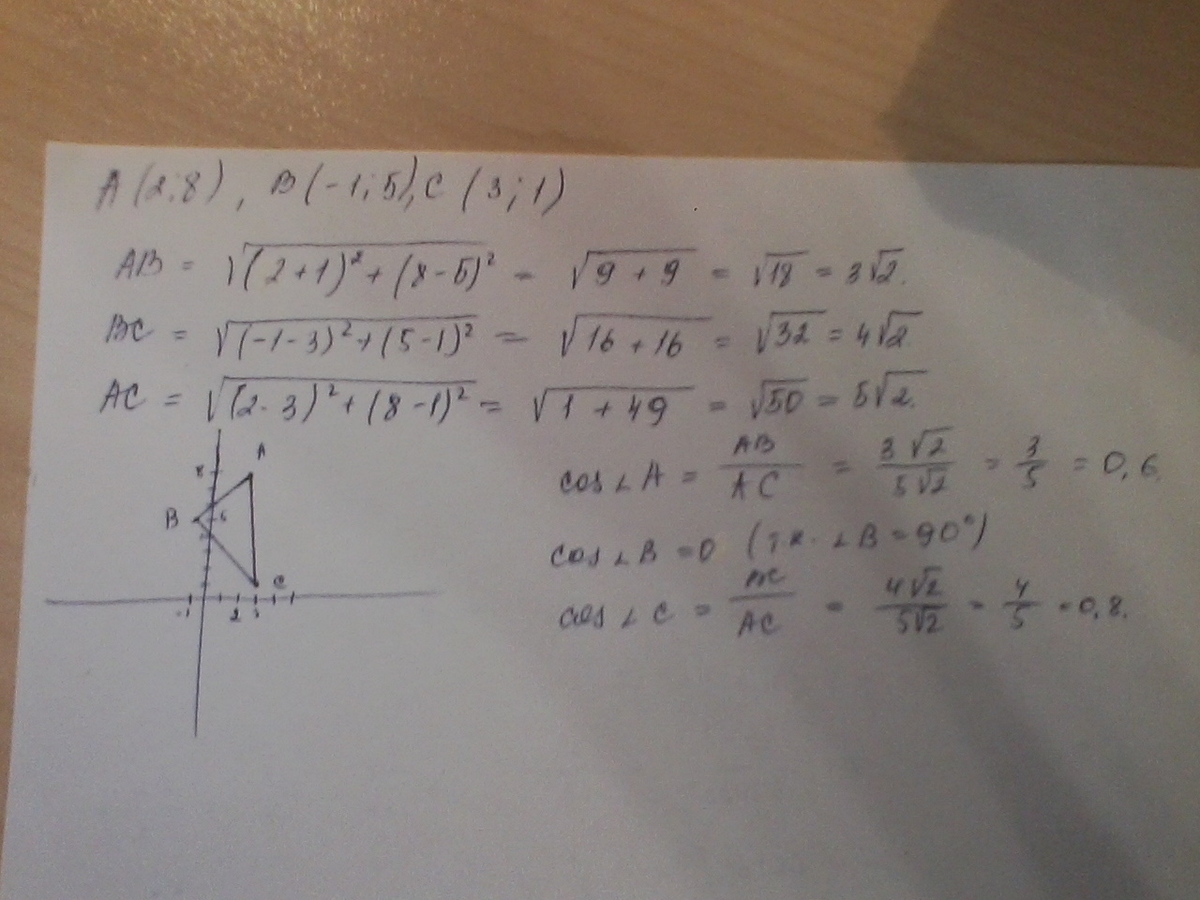 A (2; 8), B (-1; 5), C (3; 1)
AB = √((2+1)² + (8-5)²) = √(9 + 9) = √18 = 3√2.
BC = √((-1-3)² + (5-1)²) = √(16 + 16) = √32 = 4√2
AC = √((2-3)² + (8-1)²) = √(1 + 49) = √50 = 5√2.
8 A
B 5
C
-1 2 3
cos∠A = AB/AC = 3√2/5√2 = 3/5 = 0,6.
cos∠B = 0 (т.к. ∠B = 90°)
cos∠C = BC/AC = 4√2/5√2 = 4/5 = 0,8.